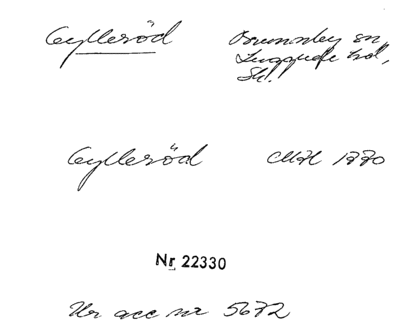 Gylleröd Brunnby sn,
Luggude hd,
Sk.
Gylleröd MH 1770
Nr 22330
Ur acc nr 5672